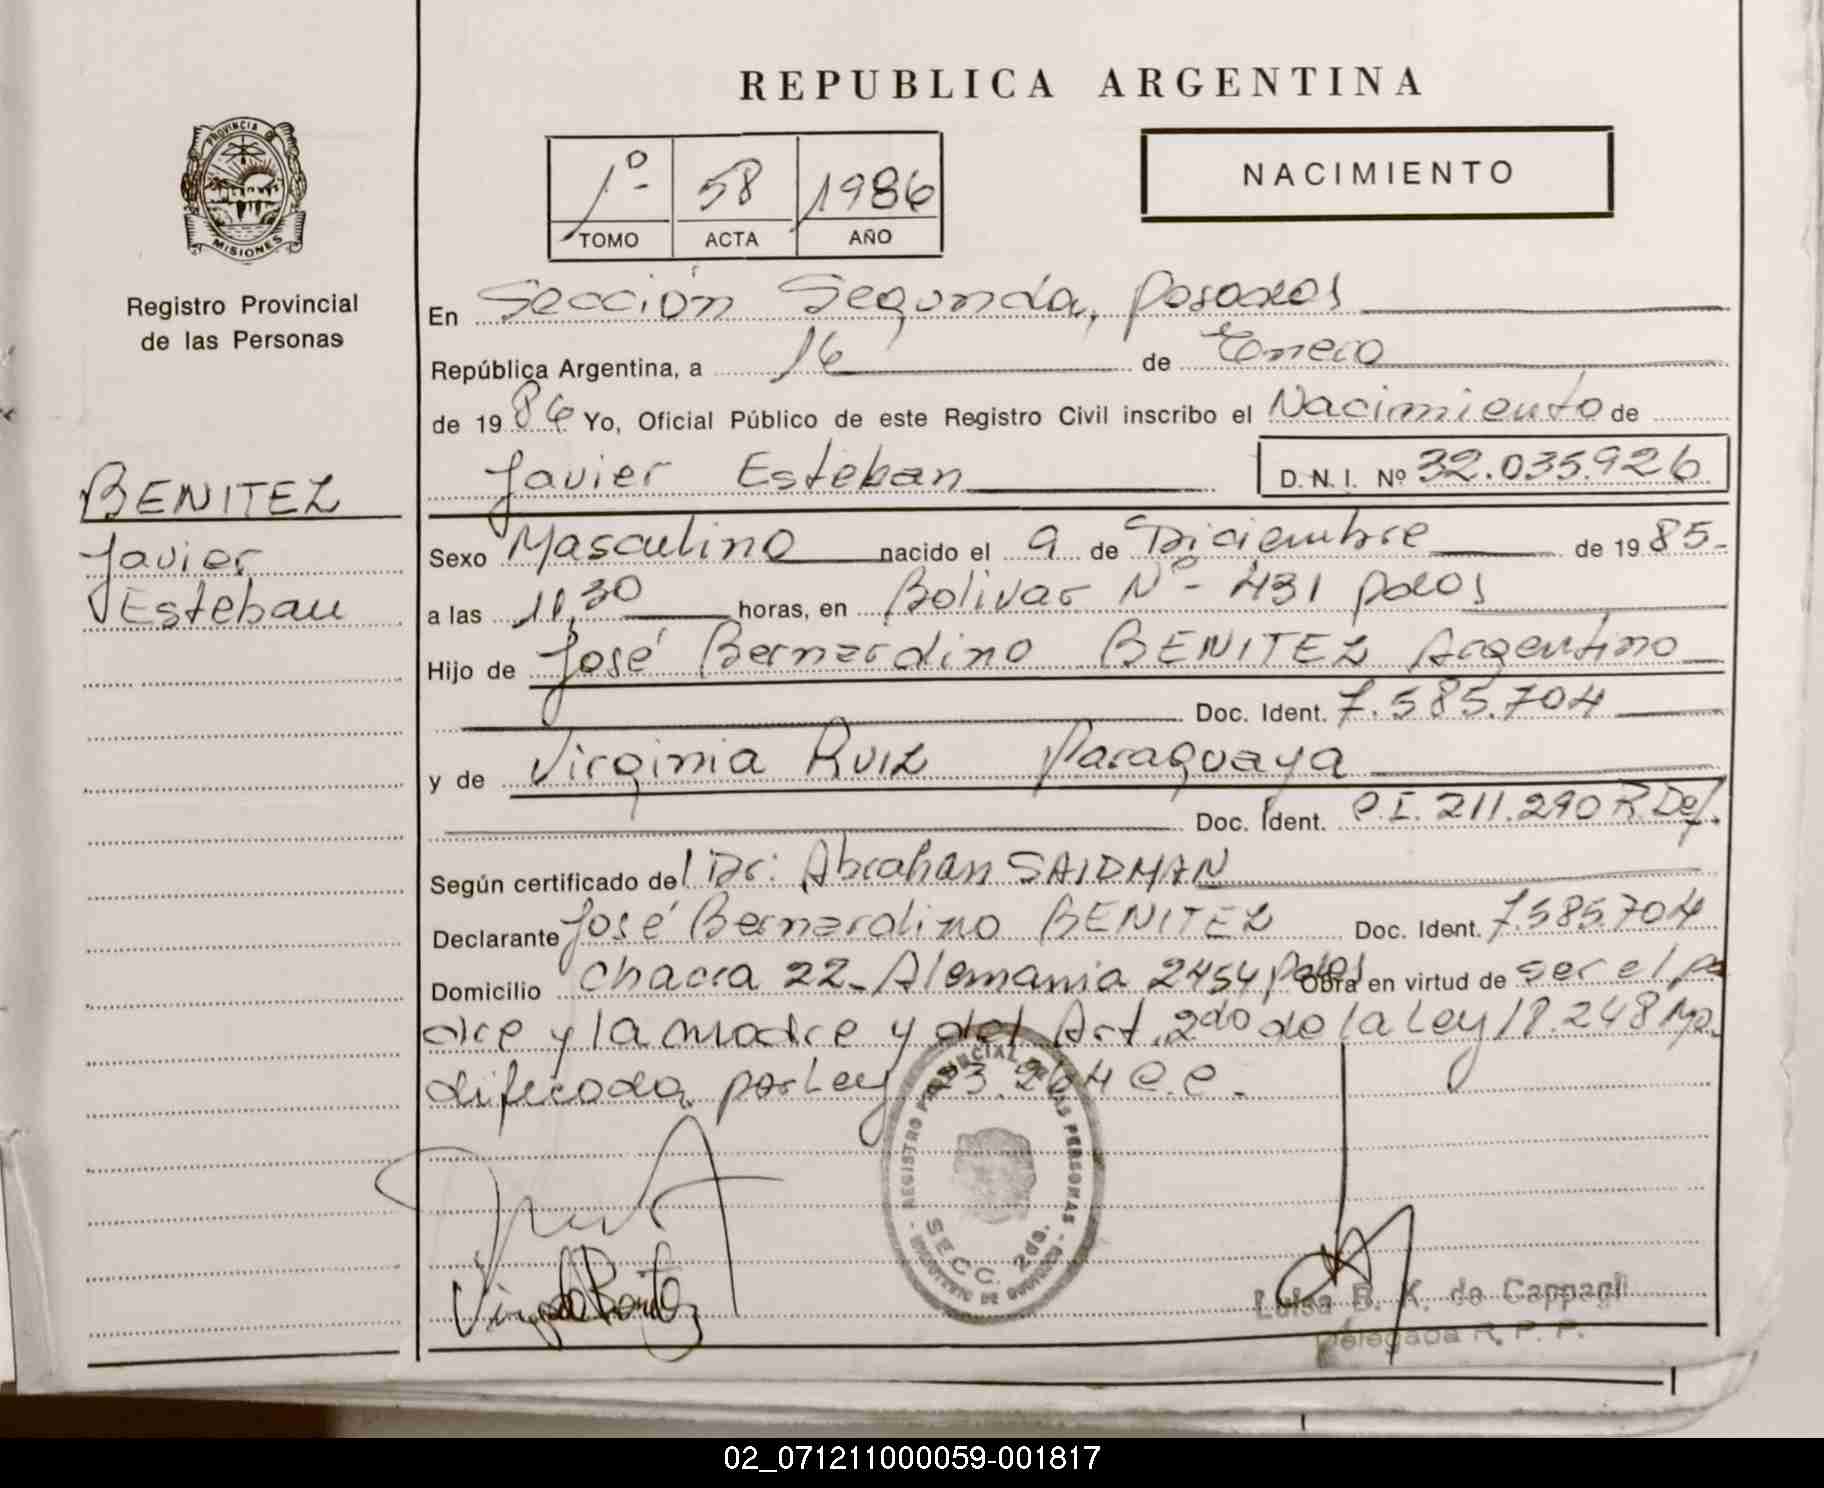 REPUBLICA ARGENTINA
PROVINCIA DE MISIONES
Registro Provincial
de las Personas
1º- 58 1986
TOMO ACTA AÑO
NACIMIENTO
En Sección Segunda, Posadas
República Argentina, a 16 de Enero
de 1986 Yo, Oficial Público de este Registro Civil inscribo el Nacimiento de
Javier Esteban D.N.I. Nº 32.035.926
BENITEZ
Javier
Esteban
Sexo Masculino nacido el 9 de Diciembre de 1985-
a las 11,30 horas, en Bolivar Nº- 431 Pdas
Hijo de José Bernardino BENITEZ Argentino
Doc. Ident. 7.585.704
y de Virginia RUIZ Paraguaya
Doc. Ident. C.I. 211.290 R.Def.
Según certificado del Dr: Abrahan SAIDMAN
Declarante José Bernardino BENITEZ Doc. Ident. 7.585.704
Domicilio Chacra 22- Alemania 2454 Pdas Obra en virtud de ser el pa
dre y la madre y del Art. 2do de la Ley 18.248 Mo
dificada por Ley 23.264 C.C.-
REGISTRO PROVINCIAL DE LAS PERSONAS
SECC. 2da.
Virginia Benitez
Luisa B. K. de Cappagli
Delegada R. P. P.
02_071211000059-001817